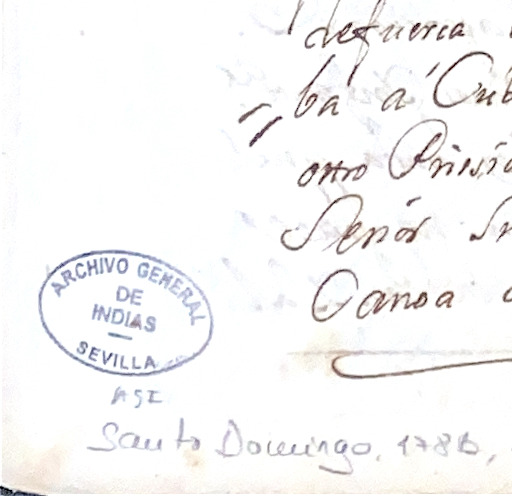 defuerza
ba a' Cub
otro
Señor
Canoa
ARCHIVO GENERAL
DE
INDIAS
SEVILLA
AGI
Santo Domingo, 178B,